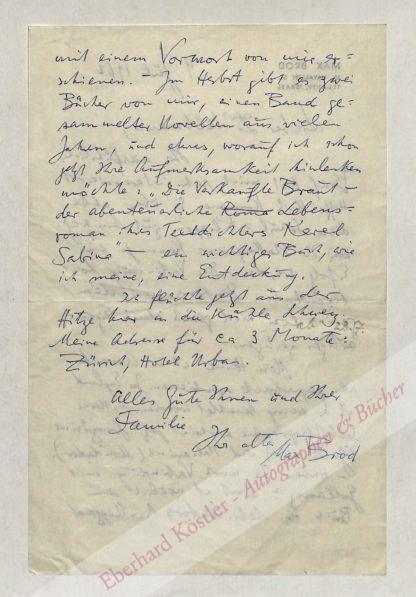 mit einem Vorwort von mir er-
schienen. – Im Herbst gibt es zwei
Bücher von mir, einen Band ge-
sammelter Novellen aus vielen
Jahren, und etwas, worauf ich schon
jetzt Ihre Aufmerksamkeit hinlenken
möchte: "Die Verkaufte Braut –
der abenteuerliche Roma Lebens-
roman des Textdichters Karel
Sabina" – ein wichtiges Buch, wie
ich meine, eine Entdeckung.
Ich flüchte jetzt aus der
Hitze hier in die Kühle
Meine Adresse für ca 3 Monate:
Zürich, Hotel Urban.
Alles Gute Ihnen und Ihrer
Familie
Ihr alter
Max Brod
MAX BROD
Eberhard Köstler - Autographen & Bücher